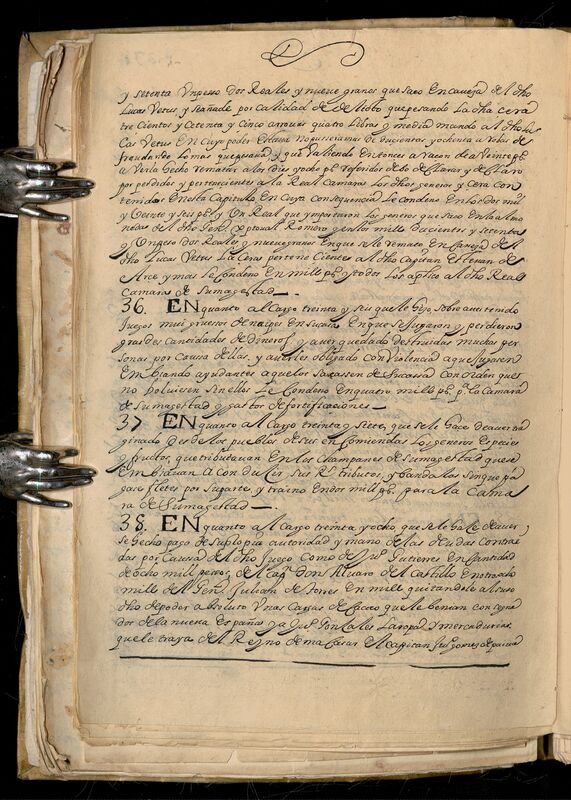 y setenta Un pesso Dos Reales y nueve granos que saco En caveza del dho
Lucas Vetus, y se añade por calidad de Delito que pesando La dha cera
tre Cientos y Cetenta y Cinco arrouas quatro Libras y media mando al dho Lu
Cas Vetus En Cuyo poder no pussiera mas de ducientas yochenta a Vetus de
fraudando Lo mas que pesaua y que Valiendo Entonces a racon de a Veinte ps
a Verla hecho rematar a los Diez yocho ps referidos
por perdidos y pertenecientes a la Real Camara Los dhos generos y Cera con
tenidos En esta Capitulo En Cuya Consequencia Le condeno En los Dos mil
y Veinte y seis ps y Un Real que ymportaron Los generos que saco En la almo
neda del dho y los mill Ducientos y setenta
y Un pesso dos Reales y nueue granos En que se le remato En Caveza del
dho Lucas Vetus La Cera perteneciente al dho Capitan Esteuan de
Arce y mas le Condeno En mill ps y todos Los aplico al dho Real
Camara de Su magestad
36. EN quanto al Cargo treinta y seis que se le hizo, sobre auer tenido
Juegos mui gruesos de naipes En su casa En que se Jugaron y perdieron
grandes cantidades de Dineros, y auer quedado destruidas muchas per
sonas por Causa dellas, y auerles obligado con Violencia a que Jugassen
Embiando ayudantes a que los sacassen de Su cassa con orden que
no bolviesen sin ellos Le Condeno En quatro mill ps pa la Camara
de Su magestad y gastos de fortificaciones
37 EN quanto al Cargo treinta y siete, que se le hace de auer tra
ginado desde los pueblos de sus Encomiendas Los generos Especies
y frutos, que tributauan En los Champanes de Su magestad que se
Embiauan a Conducir sus Rs tributos, y bandalas sin que pa
gase fletes por su parte, y traino En dos mill ps para la Cama
ra de Su magestad
38. EN quanto al Cargo treinta y ocho que se le hace de auer
se hecho pago de su propia autoridad y mano de las deudas Contrai
das por Caussa del dho Juego Como de Jun Gutierres En Cantidad
de ocho mill pesos; del Capn Don Aluaro del Castillo En tres
mill; del Genl Julian de torres En mill quitandole al suso
dho de poder absoluto Unas Cargas de Cacao que le benian con signa
das de la nueua España; y a Jun Gonsales La ropa y mercadurias
que le traya del Reyno de macassar El capitan gomes de paiua